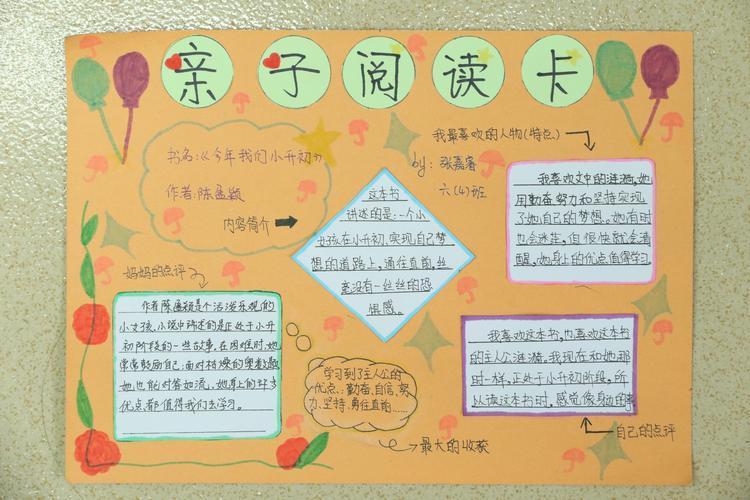 亲子阅读卡
书名:《今年我们小升初》
作者:陈盈颖
内容简介
by:张嘉睿
六(4)班
我最喜欢的人物(特点)
这本书
讲述的是:一个小
女孩在小升初、实现自己梦
想的道路上,通往直前,丝
毫没有一丝丝的恐
惧感。
我喜欢文中的涟漪,她
用勤奋努力和坚持实现
了她自己的梦想。她有时
也会迷茫,但很快就会清
醒,她身上的优点值得学习。
妈妈的点评
作者陈盈颖是个活泼乐观的
小女孩,小说中讲述的是正处于小升
初阶段的一些故事,在困难时,她
常常鼓励自己;面对枯燥的奥数题
她也能对答如流,她身上的好多
优点都值得我们去学习。
学习到了主人公的
优点:勤奋、自信、努
力、坚持、勇往直前……
最大的收获
我喜欢这本书,也喜欢这本书
的主人公涟漪,我现在和她那
时一样,正处于小升初阶段,所
以读这本书时,感觉像身边的事
自己的点评